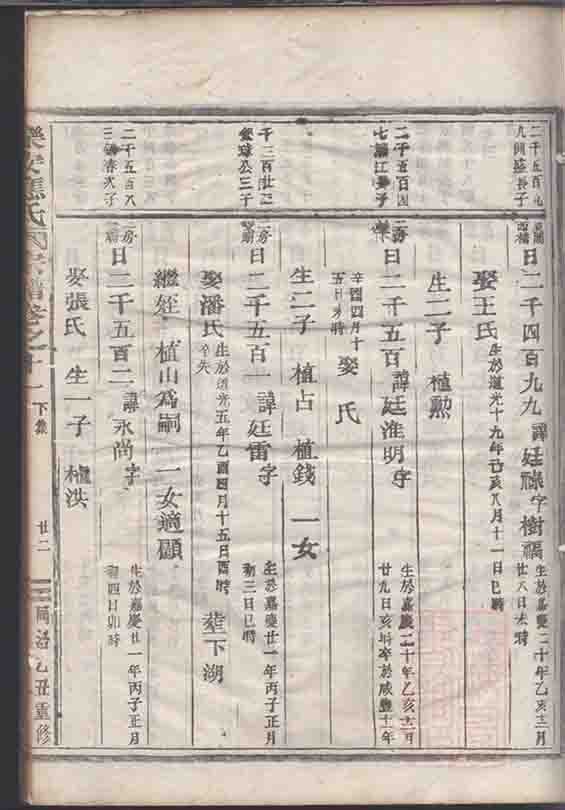 二千五百九
九闻盛長子
日二千四百九九 諱廷祿 字樹福 生於嘉慶二十年乙亥十二月
廿八日未時
娶王氏 生於道光十九年己亥八月十一日巳時
生二子 植勲
二千五百四
七 江長子
二房
日二千五百 諱廷淮明 字 生於嘉慶二十年乙亥十二月
廿九日亥時卒於咸豐十一年
辛酉四月十
五日未時 娶 氏
生二子 植占 植錢 一女
千三百廿二
公三子
二房
日二千五百一 諱廷雷 字 生於嘉慶廿一年丙子正月
初三日巳時
娶潘氏 生於道光五年乙酉四月十五日酉時 葬下湖
卒失
繼姪 植山爲嗣 一女適顧
二千五百八
三 春次子
二房
日二千五百二 諱永尚 字 生於嘉慶廿一年丙子正月
初四日卯時
娶張氏 生一子 植洪
樂安 氏 宗譜卷之十一 下集 廿二 同治乙丑重修